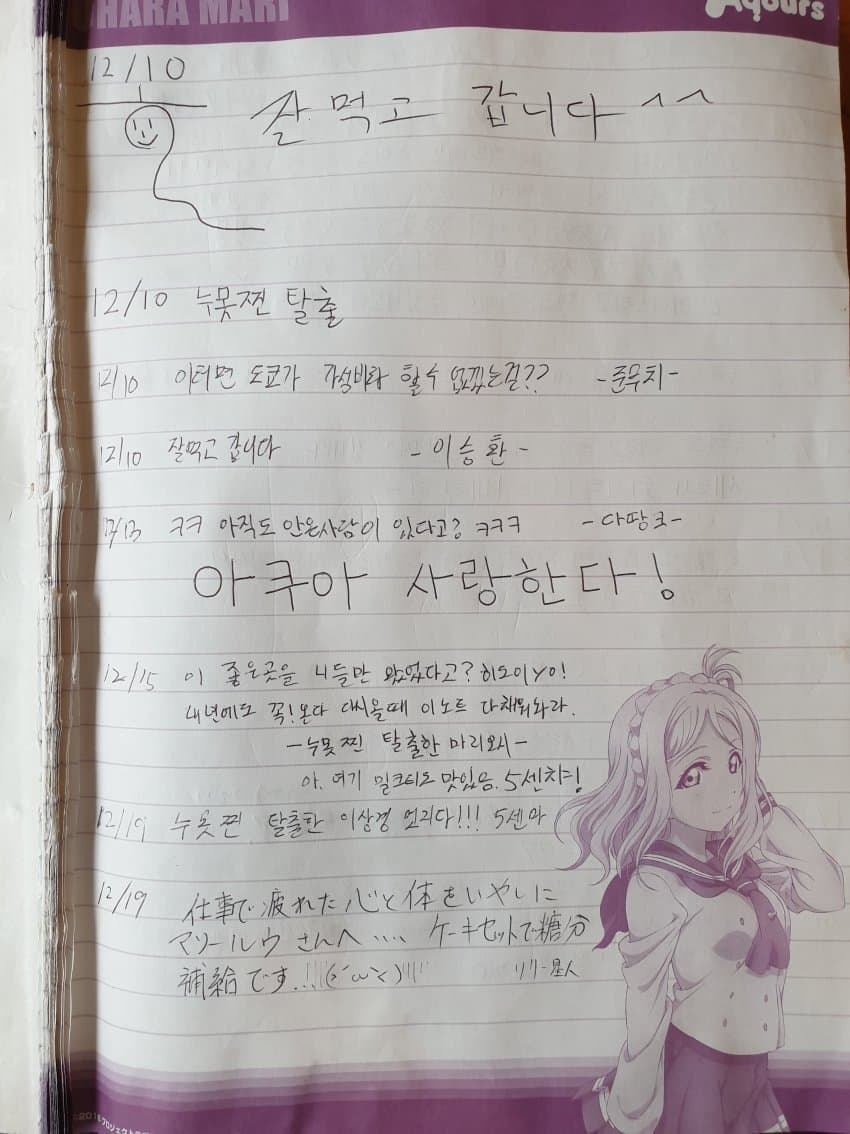 OHARA MARI
Aqours
12/10
잘 먹고 갑니다 ^^
12/10 누못찐 탈출
12/10 이터면 도쿄가 가성비라 할수 없겠는걸?? -준무치-
12/10 잘먹고 갑니다 -이승환-
12/13 ㅋㅋ 아직도 안온사람이 있다고? ㅋㅋㅋ -다땅크-
아쿠아 사랑한다!
12/15 이 좋은곳을 니들만 왔었다고? 히도이Yo!
내년에도 꼭! 온다 대씨올때 이노트 다채워놔라.
-누못찐 탈출한 마리오시-
아. 여기 밀크티도 맛있음. 5센챠!
12/19 누못찐 탈출한 이상경 왔다!!! 5센마
12/19 仕事で疲れた心と体をいやしに
マソールウさんへ.... ケーキセットで糖分
補給です..!!(๑´ω`๑)!!!
リリー星人